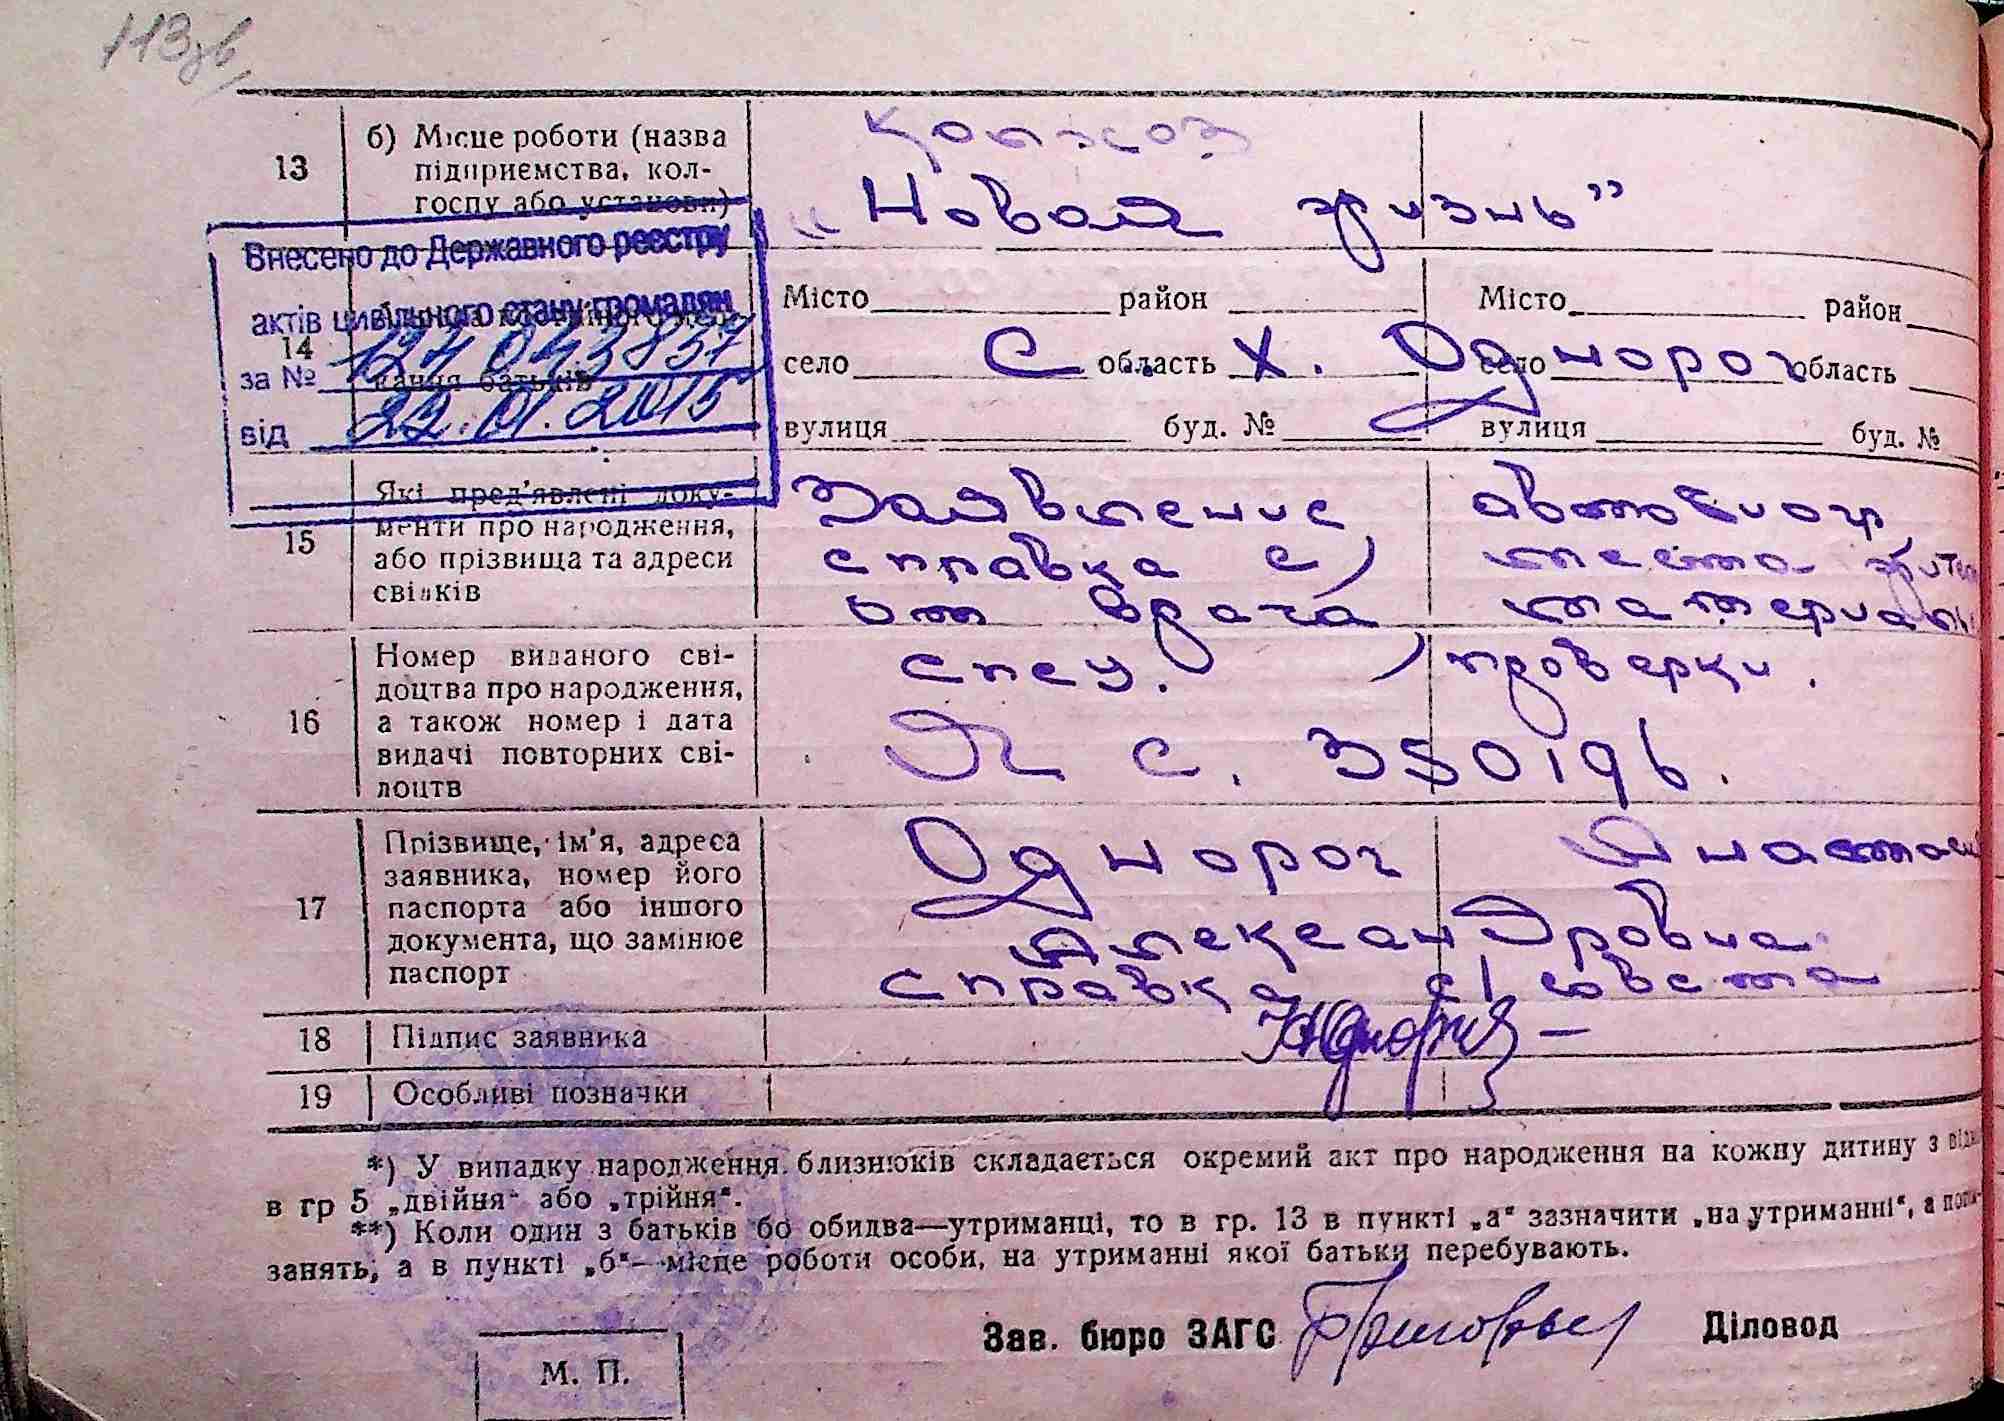 113зв.
13
б) Місце роботи (назва
підприємства, кол-
госпу або установи)
колхоз
"Новая жизнь"
Внесено до Державного реєстру
актів цивільного стану громадян
за №
від 22.01.2015
14
кання батьків
Місто район Місто район
село С область Х. Однорог село область
вулиця буд. № вулиця буд. №
15
Які пред'явлені доку-
менти про народження,
або прізвища та адреси
свідків
Заявление автобиогр
справка с) места жител
от врача материалы
спец. проверки.
16
Номер виданого сві-
доцтва про народження,
а також номер і дата
видачі повторних сві-
доцтв
с. 350196.
17
Прізвище, ім'я, адреса
заявника, номер його
паспорта або іншого
документа, що замінює
паспорт
Однорог
Александровна
справка с/совета
18 Підпис заявника
19 Особливі позначки
*) У випадку народження близнюків складається окремий акт про народження на кожну дитину з
в гр 5 „двійня" або „трійня".
**) Коли один з батьків бо обидва—утриманці, то в гр. 13 в пункті „а" зазначити „на утриманні", а
занять, а в пункті „б"—місце роботи особи, на утриманні якої батьки перебувають.
Зав. бюро ЗАГС Діловод
М. П.